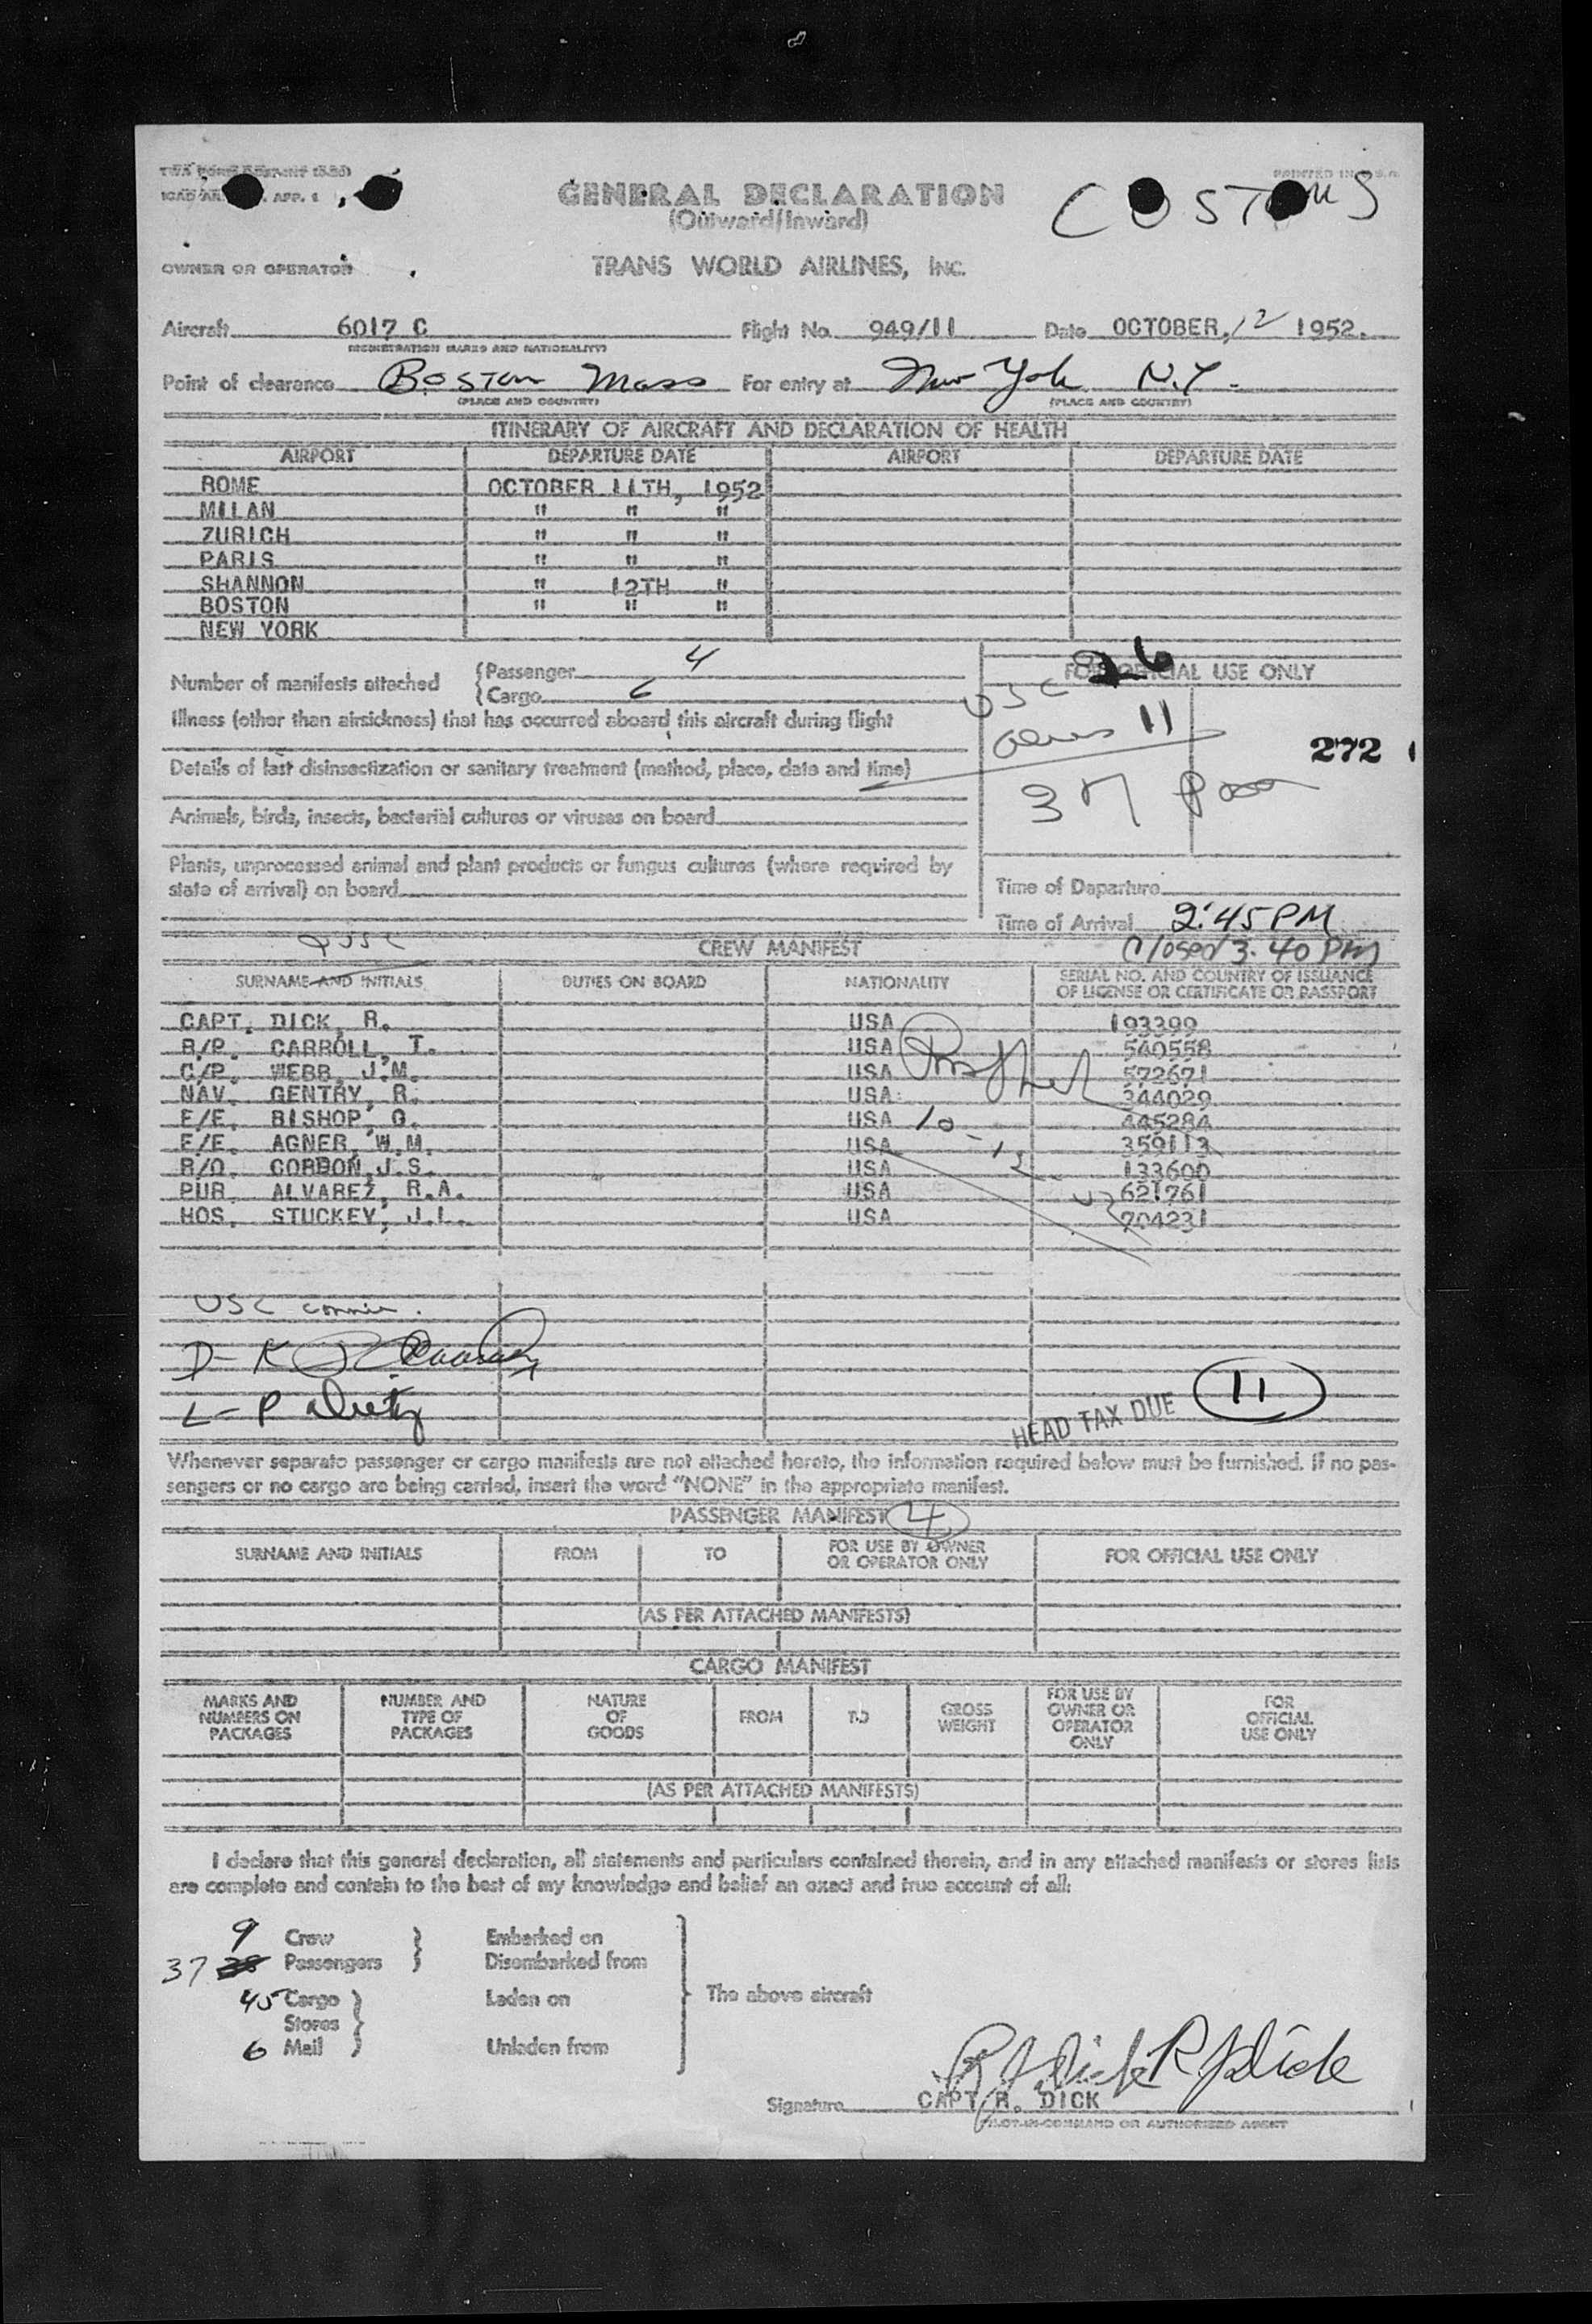 GENERAL DECLARATION
(Outward/Inward)
CUSTOMS
PRINTED IN U.S.A.
OWNER OR OPERATOR
TRANS WORLD AIRLINES, INC.
Aircraft 6017 C Flight No. 949/11 Date OCTOBER, 12 1952.
(REGISTRATION MARKS AND NATIONALITY)
Point of clearance Boston Mass For entry at New York N.Y.
(PLACE AND COUNTRY) (PLACE AND COUNTRY)
ITINERARY OF AIRCRAFT AND DECLARATION OF HEALTH
AIRPORT DEPARTURE DATE AIRPORT DEPARTURE DATE
ROME OCTOBER 11TH, 1952
MILAN " " "
ZURICH " " "
PARIS " " "
SHANNON " 12TH "
BOSTON " " "
NEW YORK
Number of manifests attached {Passenger 4
{Cargo 6
FOR OFFICIAL USE ONLY
USC 26
Aliens 11
37 Pass
272
Illness (other than airsickness) that has occurred aboard this aircraft during flight
Details of last disinsectization or sanitary treatment (method, place, date and time)
Animals, birds, insects, bacterial cultures or viruses on board
Plants, unprocessed animal and plant products or fungus cultures (where required by
state of arrival) on board
Time of Departure
Time of Arrival 2:45 PM
Closed 3.40 PM
CREW MANIFEST
SURNAME AND INITIALS DUTIES ON BOARD NATIONALITY SERIAL NO. AND COUNTRY OF ISSUANCE
OF LICENSE OR CERTIFICATE OR PASSPORT
CAPT. DICK, R. USA 193399
R/P. CARROLL, T. USA 540558
C/P. WEBB, J.M. USA 572671
NAV. GENTRY, R. USA 344029
F/E. BISHOP, O. USA 445284
F/E. AGNER, W.M. USA 359113
R/O. CORDON, J.S. USA 133600
PUR. ALVAREZ, R.A. USA 621761
HOS. STUCKEY, J.L. USA 704231
10-12
USC
HEAD TAX DUE 11
Whenever separate passenger or cargo manifests are not attached hereto, the information required below must be furnished. If no pas-
sengers or no cargo are being carried, insert the word "NONE" in the appropriate manifest.
PASSENGER MANIFEST 4
SURNAME AND INITIALS FROM TO FOR USE BY OWNER
OR OPERATOR ONLY FOR OFFICIAL USE ONLY
(AS PER ATTACHED MANIFESTS)
CARGO MANIFEST
MARKS AND
NUMBERS ON
PACKAGES NUMBER AND
TYPE OF
PACKAGES NATURE
OF
GOODS FROM TO GROSS
WEIGHT FOR USE BY
OWNER OR
OPERATOR
ONLY FOR
OFFICIAL
USE ONLY
(AS PER ATTACHED MANIFESTS)
I declare that this general declaration, all statements and particulars contained therein, and in any attached manifests or stores lists
are complete and contain to the best of my knowledge and belief an exact and true account of all:
9 Crew } Embarked on
37 38 Passengers } Disembarked from
45 Cargo } Laden on The above aircraft
Stores
6 Mail } Unladen from
R F Dick R F Dick
Signature CAPT. R. DICK
PILOT-IN-COMMAND OR AUTHORIZED AGENT